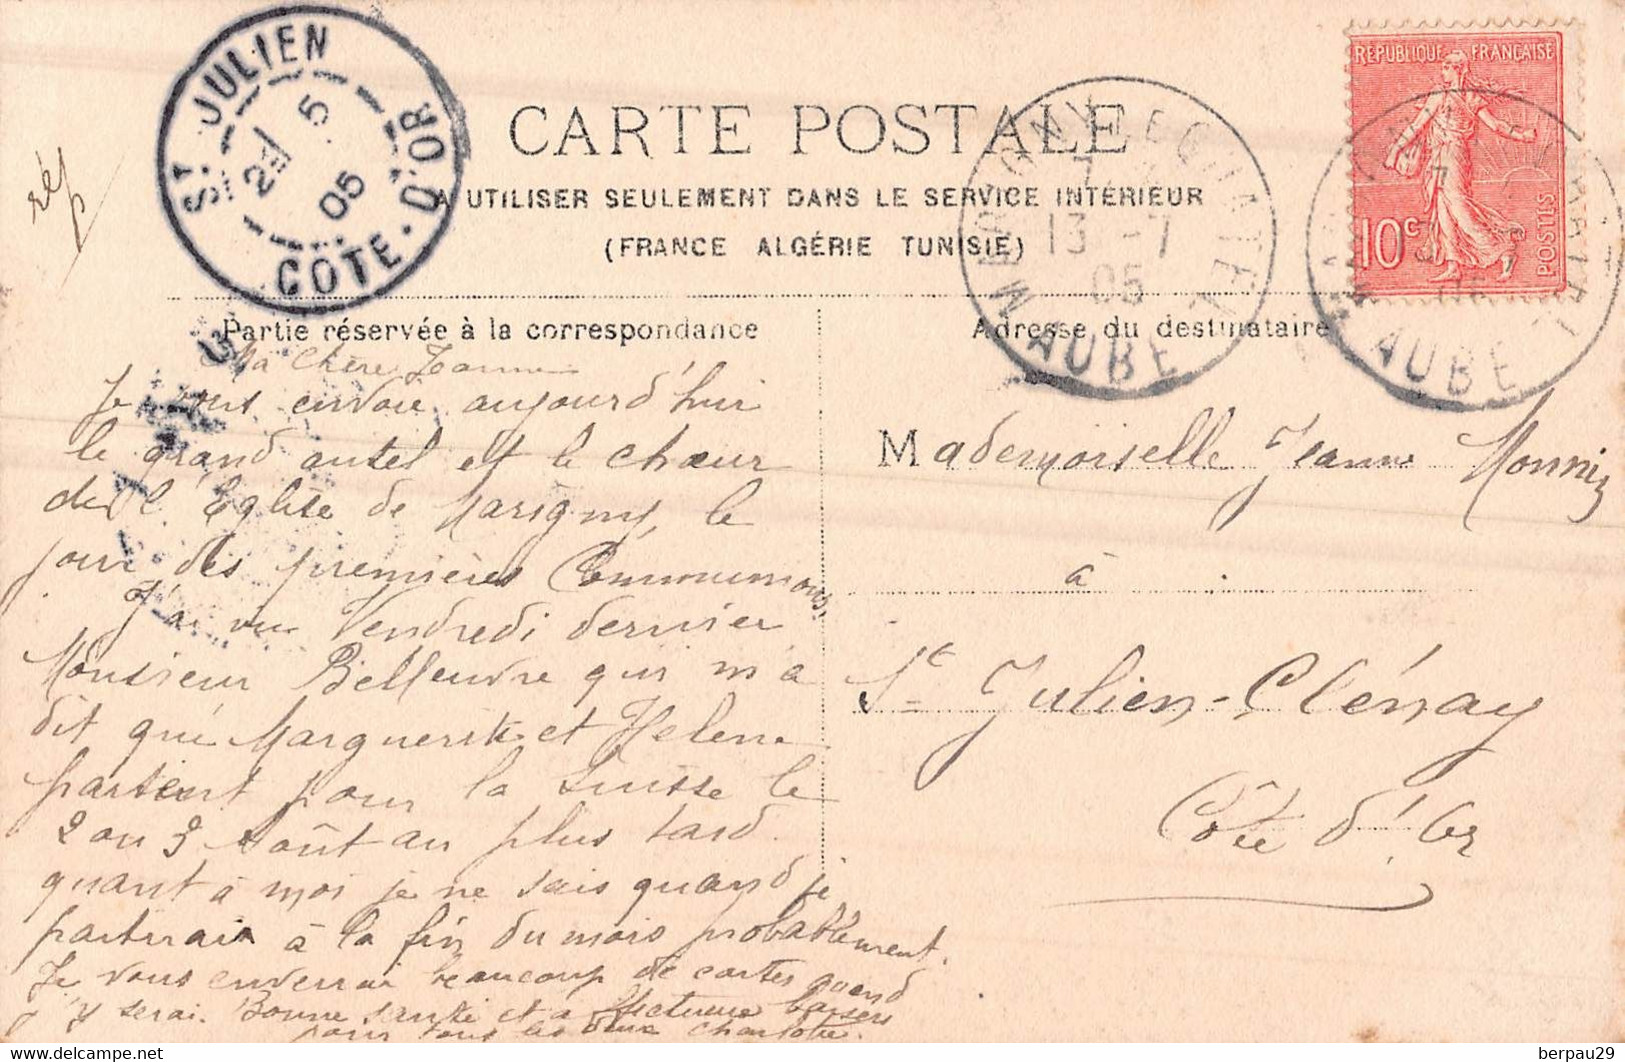 ST JULIEN
21 5
05
COTE-D'OR
rep
CARTE POSTALE
A UTILISER SEULEMENT DANS LE SERVICE INTÉRIEUR
(FRANCE ALGÉRIE TUNISIE)
MARIGNY-LE-CHATEL
13 -7
05
AUBE
RÉPUBLIQUE FRANÇAISE
10c
POSTES
AUBE
Partie réservée à la correspondance
Ma chère Jeanne
Je vous envoie aujourd'hui
le grand autel et le chœur
de l'Eglise de Marigny, le
jour des premières Communions.
J'ai vu Vendredi dernier
Monsieur Belleuvre qui m'a
dit que Marguerite et Helene
partent pour la Suisse le
2 ou 3 Août au plus tard.
quant à moi je ne sais quand je
partirais à la fin du mois probablement.
Je vous enverrai beaucoup de cartes quand
j'y serai. Bonne santé et affectueux baisers
pour tous les deux Charlotte.
Adresse du destinataire
Mademoiselle Jeanne Monniz
à
St Julien-Clénay
Côte d'Or
berpau29